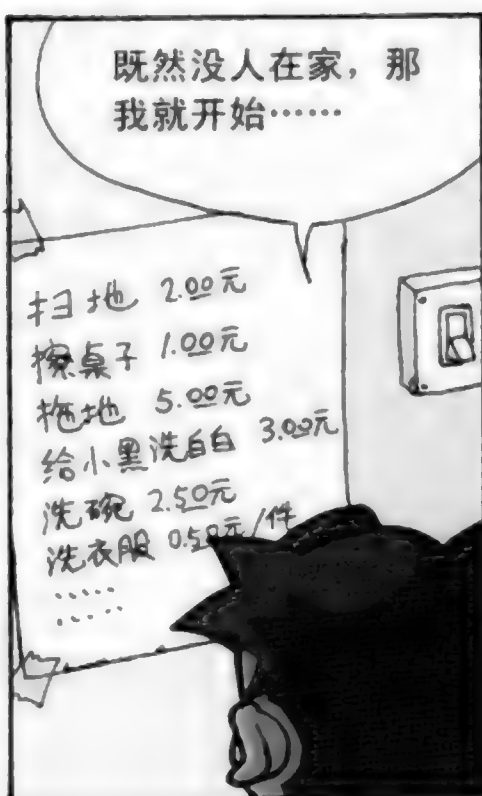 既然没人在家，那
我就开始……
扫地 2.00元
擦桌子 1.00元
拖地 5.00元
给小黑洗白白 3.00元
洗碗 2.50元
洗衣服 0.50元/件
……
……